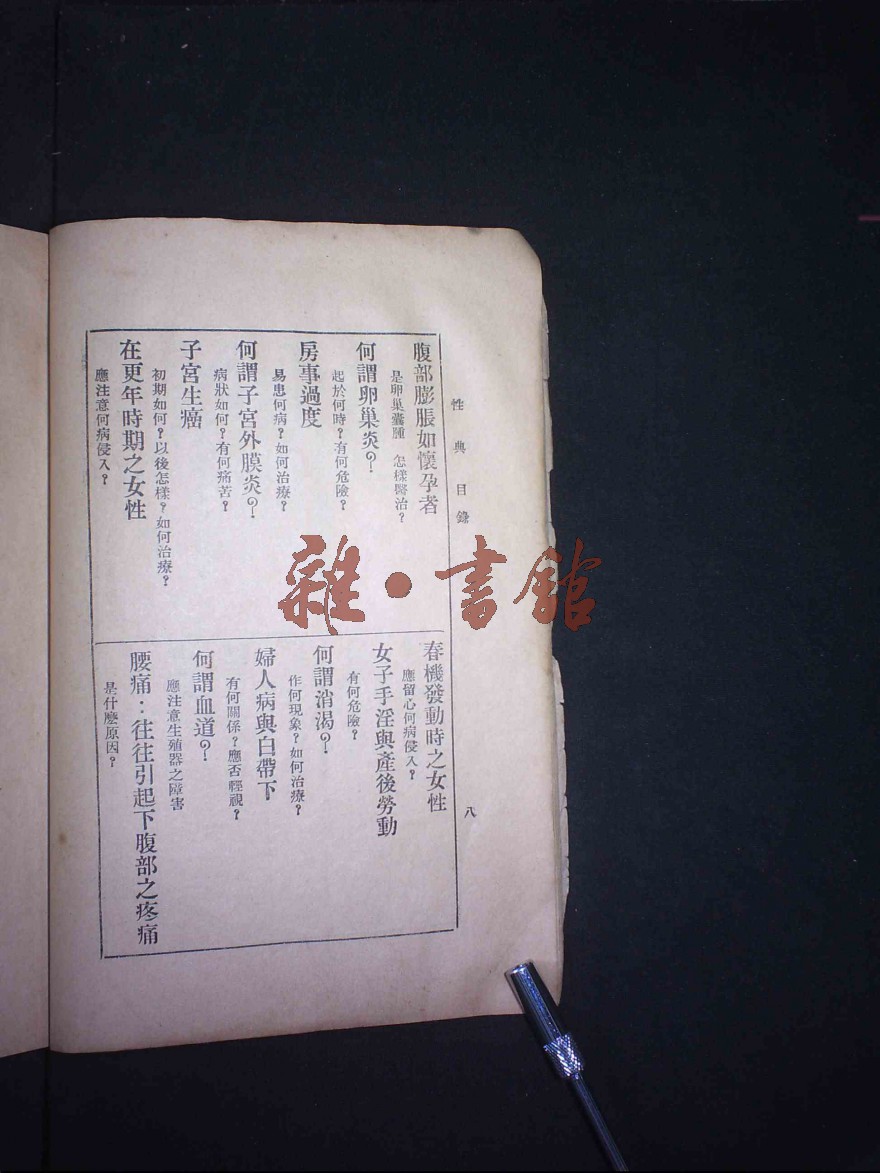 性典目錄
八
腹部膨脹如懷孕者
是卵巢囊腫 怎樣醫治?
何謂卵巢炎?
起於何時?有何危險?
房事過度
易患何病?如何治療?
何謂子宮外膜炎?
病狀如何?有何痛苦?
子宮生癌
初期如何?以後怎樣?如何治療?
在更年時期之女性
應注意何病侵入?
春機發動時之女性
應留心何病侵入?
女子手淫與產後勞動
有何危險?
何謂消渴?
作何現象?如何治療?
婦人病與白帶下
有何關係?應否輕視?
何謂血道?
應注意生殖器之障害
腰痛:往往引起下腹部之疼痛
是什麼原因?
雜·書館